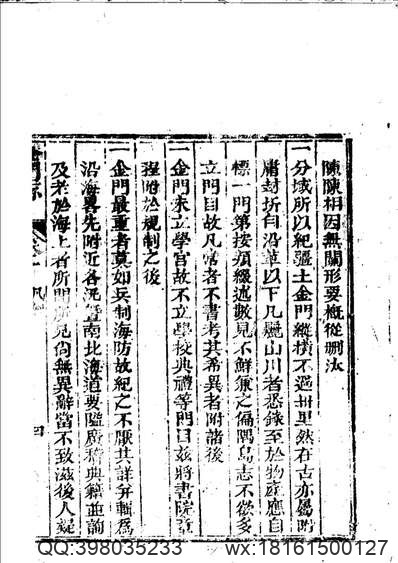 陳陳相因無關形要概從刪汰
一分域所以紀疆土金門縱橫不過卅里然在古亦屬附
庸封折自沿革以下凡麗山川者悉錄至於物產應自
標一門第按類綴述數見不鮮彈之偏隅島志不欲多
立門目故凡常者不書考其希異者附諸後
一金門未立學官故不立學校典禮等門目茲將書院章
程附於規制之後
一金門最重者莫如兵制海防故紀之不厭其詳并輯為
沿海畧先附近各汛暨南北海道要隘廣稽典籍並詢
及老於海上者所聞所見尚無異辭當不致滋後人疑
金門志
卷一
凡例
四
QQ:398035233 wx:18161500127